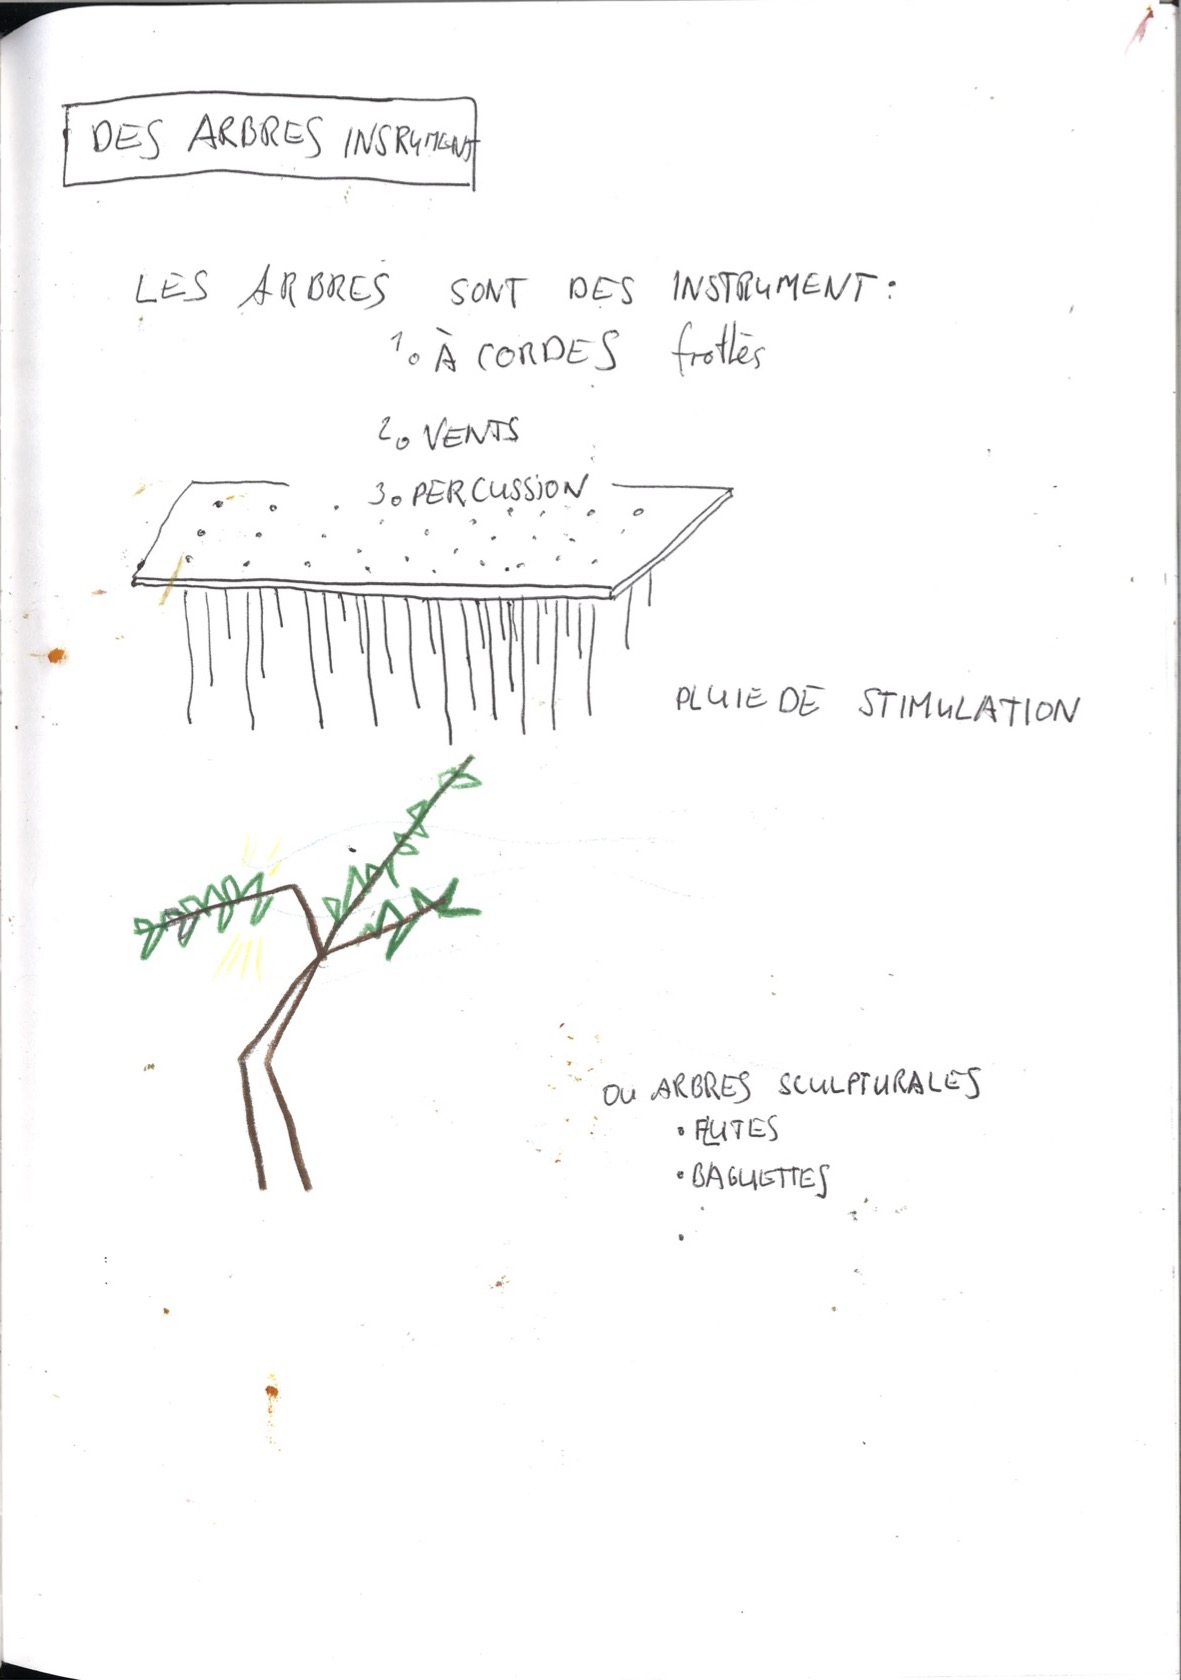 DES ARBRES INSRUMENT
LES ARBRES SONT DES INSTRUMENT:
1. À CORDES frottès
2. VENTS
3. PERCUSSION
PLUIE DE STIMULATION
OU ARBRES SCULPTURALES
• FLUTES
• BAGUETTES
•